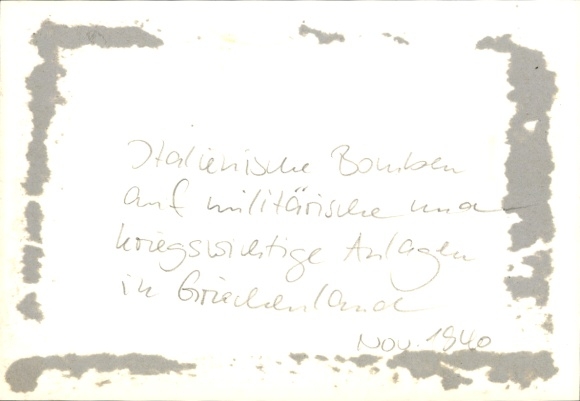 Italienische Bomben
auf militärische und
kriegswichtige Anlagen
in Griechenland
Nov. 1940